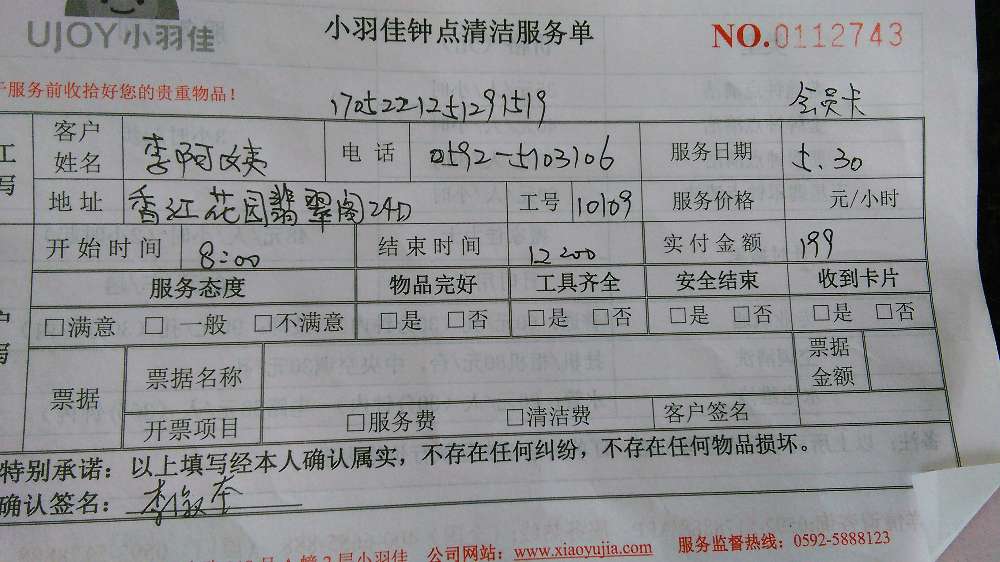 UJOY小羽佳 小羽佳钟点清洁服务单 NO.0112743
服务前收拾好您的贵重物品！ 1705221251291519 会员卡
客户姓名 李阿姨 电话 0592-5103106 服务日期 5.30
地址 香江花园翡翠阁24D 工号 10109 服务价格 元/小时
开始时间 8:00 结束时间 12:00 实付金额 199
服务态度 物品完好 工具齐全 安全结束 收到卡片
□满意 □一般 □不满意 □是 □否 □是 □否 □是 □否 □是 □否
票据 票据名称 票据金额
开票项目 □服务费 □清洁费 客户签名
特别承诺：以上填写经本人确认属实，不存在任何纠纷，不存在任何物品损坏。
确认签名：李
2层小羽佳 公司网站：www.xiaoyujia.com 服务监督热线：0592-5888123